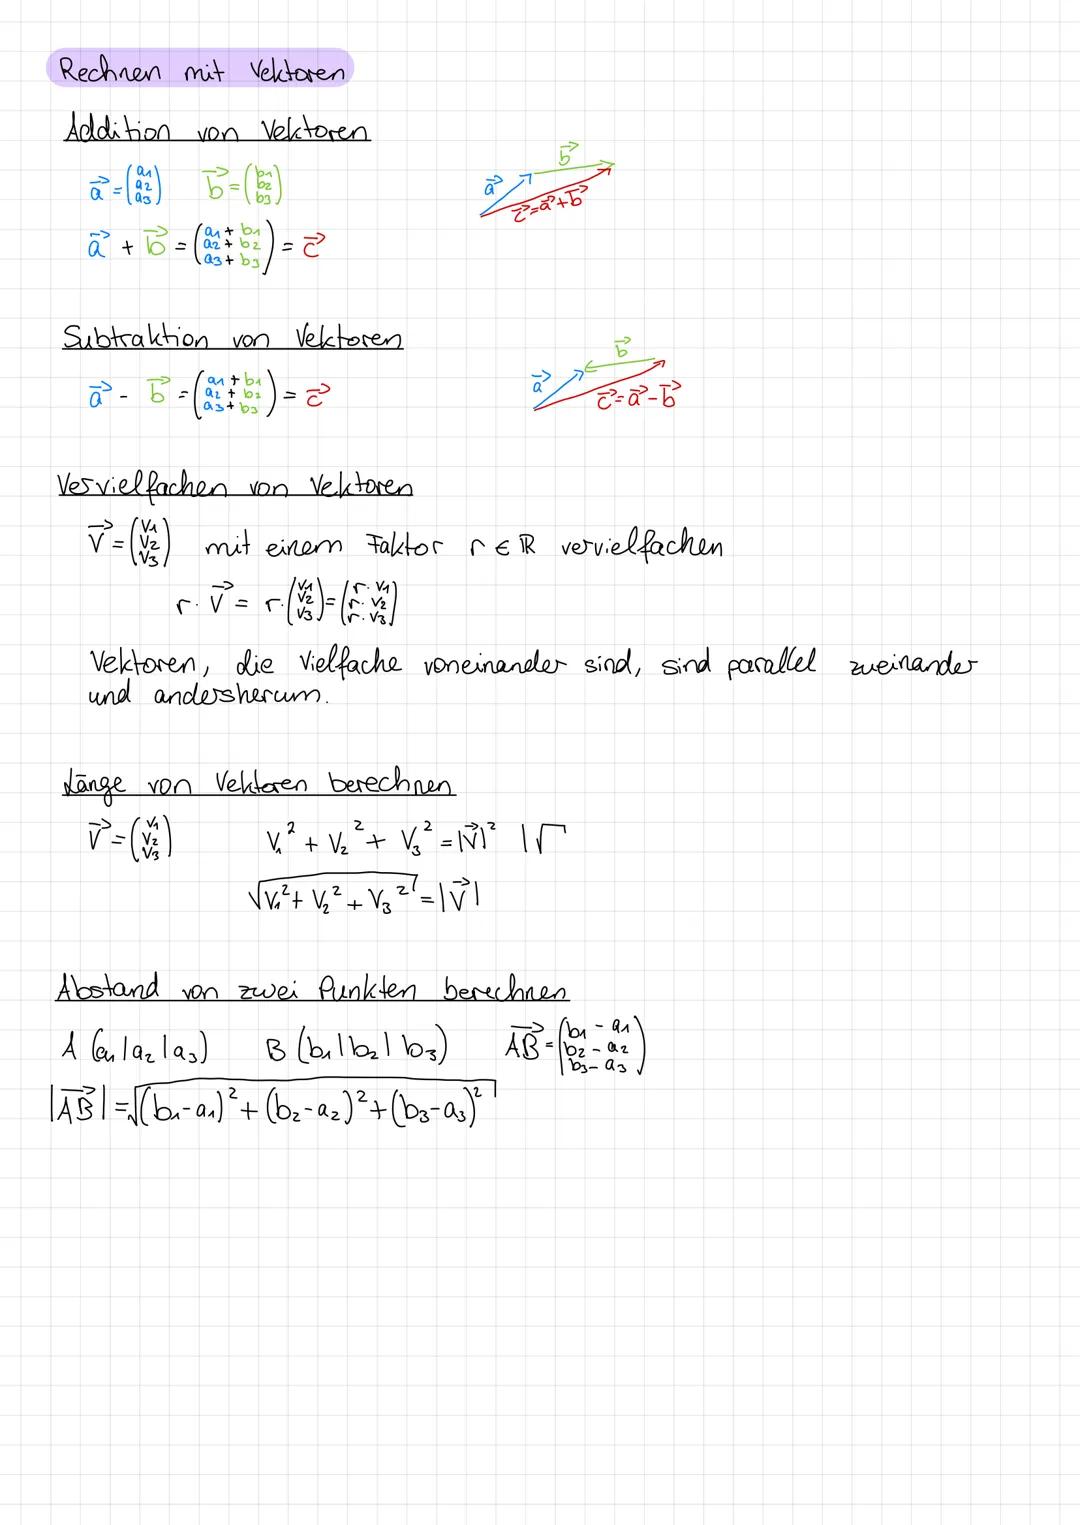 Rechnen mit Vektoren
Addition von Vektoren
a⃗ = (a1 a2 a3) b⃗ = (b1 b2 b3)
a⃗ b⃗ c⃗ = a⃗ + b⃗
a⃗ + b⃗ = (a1 + b1 a2 + b2 a3 + b3) = c⃗
Subtraktion von Vektoren
a⃗ - b⃗ = (a1 + b1 a2 + b2 a3 + b3) = c⃗
a⃗ b⃗ c⃗ = a⃗ - b⃗
Vervielfachen von Vektoren
v⃗ = (v1 v2 v3) mit einem Faktor r ∈ ℝ vervielfachen
r · v⃗ = r · (v1 v2 v3) = (r · v1 r · v2 r · v3)
Vektoren, die Vielfache voneinander sind, sind parallel zueinander
und andersherum.
Länge von Vektoren berechnen
v⃗ = (v1 v2 v3) v1² + v2² + v3² = |v⃗|² |√
√(v1² + v2² + v3²) = |v⃗|
Abstand von zwei Punkten berechnen
A (a1 | a2 | a3) B (b1 | b2 | b3) AB⃗ = (b1 - a1 b2 - a2 b3 - a3)
|AB⃗| = √((b1-a1)² + (b2-a2)² + (b3-a3)²)